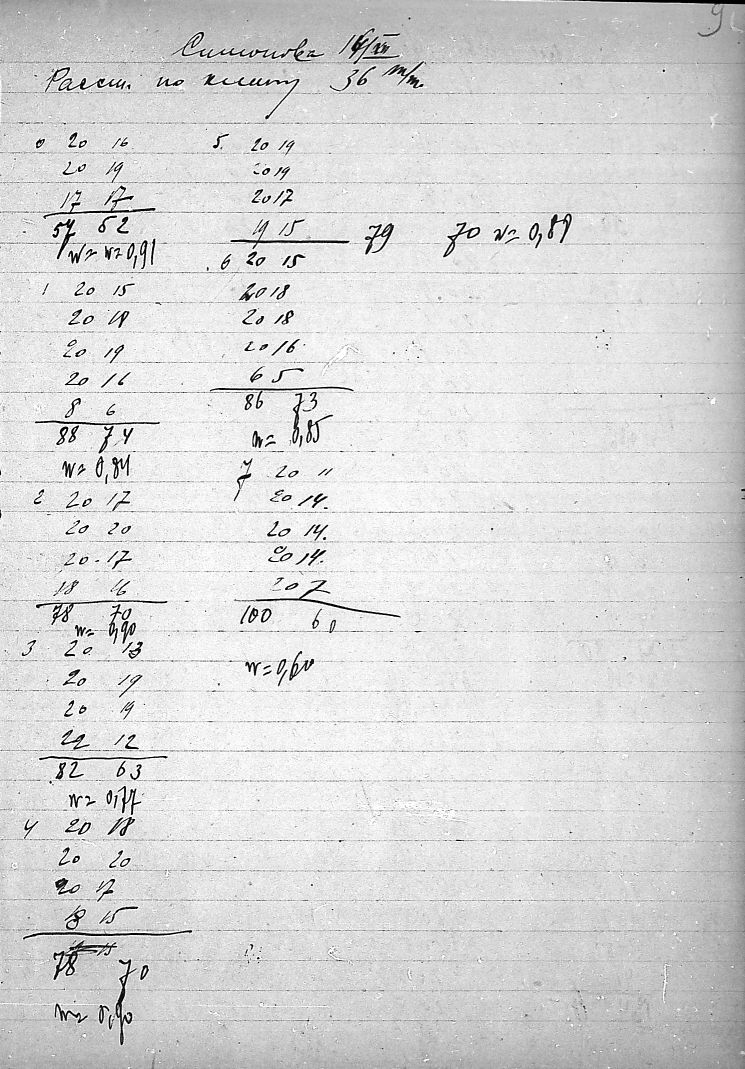 Симонова 16/XII
по 36 m/m.
0 20 16
20 19
17 17
57 52
w= w=0,91
1 20 15
20 18
20 19
20 16
8 6
88 74
w=0,84
2 20 17
20 20
20-17
18 16
78 70
w=0,90
3 20 13
20 19
20 19
22 12
82 63
w=0,77
4 20 18
20 20
20 17
18 15
78 70
w=0,90
5. 20 19
20 19
20 17
19 15 79 70 w=0,89
6 20 15
20 18
20 18
20 16
6 5
86 73
w=0,85
7 20 11
20 14.
20 14.
20 14.
20 7
100 60
w=0,60